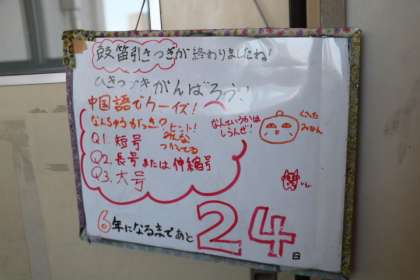 鼓笛引きつぎが終わりましたね!
ひきつづきがんばろう!!
中国語でクーイズ!
なんちゅうがっき?
ヒント!
みんな
つかってる
Q1. 短号
Q2. 長号 または 伸縮号
Q3. 大号
なんていうかは
しらんぜ!
くさった
みかん
6年になるまであと 24日